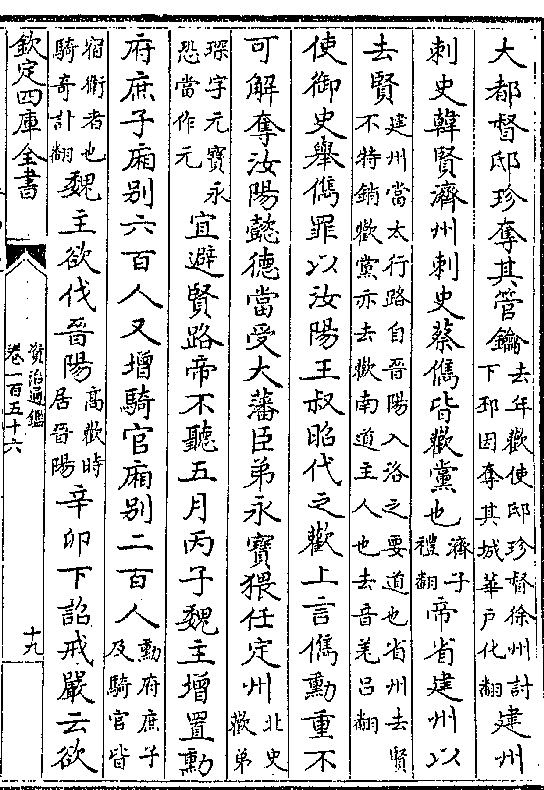 大都督邸珍奪其管鑰去年歡使邸珍督徐州討下邳因奪其城華戸化翻建州
刺史韓賢濟州刺史蔡儁皆歡黨也濟子禮翻帝省建州以
去賢建州當太行路自晉陽入洛之要道也省州去賢不特銷歡黨亦去歡南道主人也去音羌吕翻
使御史舉儁罪以汝陽王叔昭代之歡上言儁勳重不
可解奪汝陽懿德當受大藩臣弟永寶猥任定州北史歡弟
琛字元寶永恐當作元宜避賢路帝不聽五月丙子魏主增置勳
府庶子廂别六百人又增騎官廂别二百人勳府庶子及騎官皆
宿衛者也騎奇計翻魏主欲伐晉陽高歡時居晉陽辛卯下詔戒嚴云欲
欽定四庫全書
資治通鑑
卷一百五十六
十九